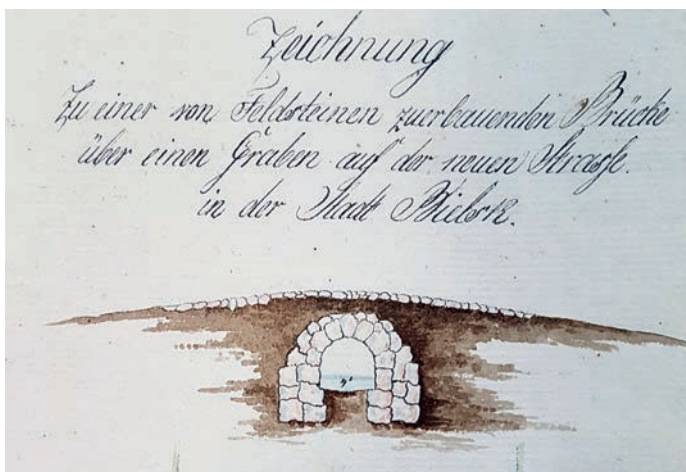 Zeichnung
Zu einer von Feldsteinen zuerbauenden Brücke
über einen Graben auf der neuen Strasse.
in der Stadt Bielsk.